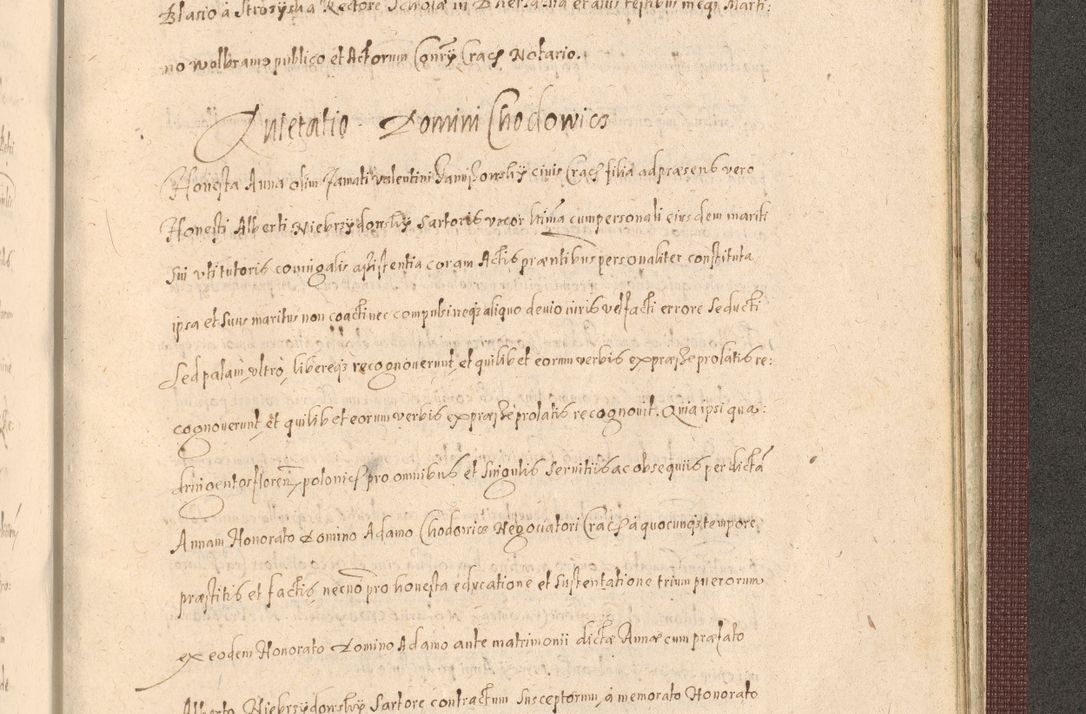 Blasio à Strozyska Rectore Scholæ in et aliis testibus meq3 Marti:
no Wolbramo publico et Actorum Conry Crac Notario.
Quietatio Domini Chodowicz
Honesta Anna olim famati Valentini civis Crac filia ad præsens vero
Honesti Alberti Niebrzydowsky Sartoris vxor ltima cum personali eiusdem mariti
sui vti tutoris coniugalis assistentia coram Actis præntibus personaliter constituta
ipsa et suus maritus non coacti nec compulsi neq3 aliquo devio iuris vel facti errore seducti
Sed palam, vltro, libereq3 recognouerunt, et quilibet eorum verbis expresse prolatis re:
cognouerunt, et quilibet eorum verbis expresse prolatis recognouit. Quia ipsi qua:
dringentos floren, polonics pro omnibus et singulis seruitiis ac obsequiis per dictā
Annam Honorato Domino Adamo Chodowicz Negociatori Crac à quocunq3 tempore
præstitis et factis, necnō pro honesta educatione et sustentatione trium puerorum
ex eodem Honorato Domino Adamo ante matrimonii dictæ Annæ cum præfato
Alberto Niebrzydowsky Sartore contractum susceptorum, à memorato Honorato